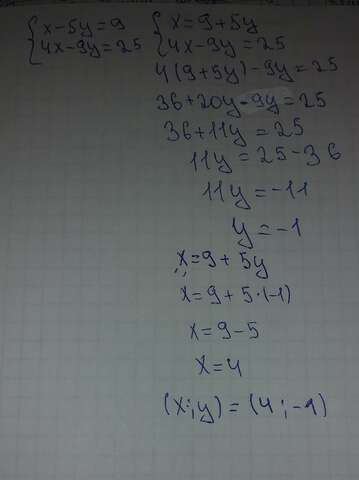 {x-5y=9 {x=9+5y
{4x-9y=25 {4x-9y=25
4(9+5y)-9y=25
36+20y-9y=25
36+11y=25
11y=25-36
11y=-11
y=-1
x=9+5y
x=9+5·(-1)
x=9-5
x=4
(x;y)=(4;-1)